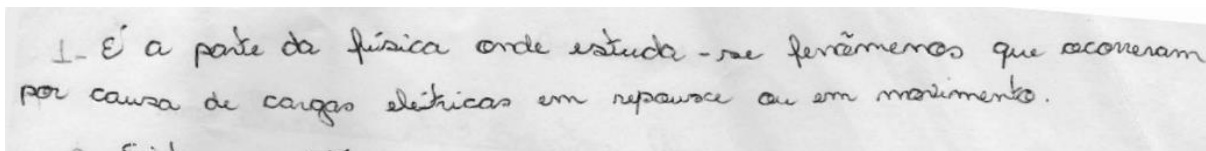 1- É a parte da física onde estuda-se fenômenos que ocorreram
por causa de cargas elétricas em repouso ou em movimento.